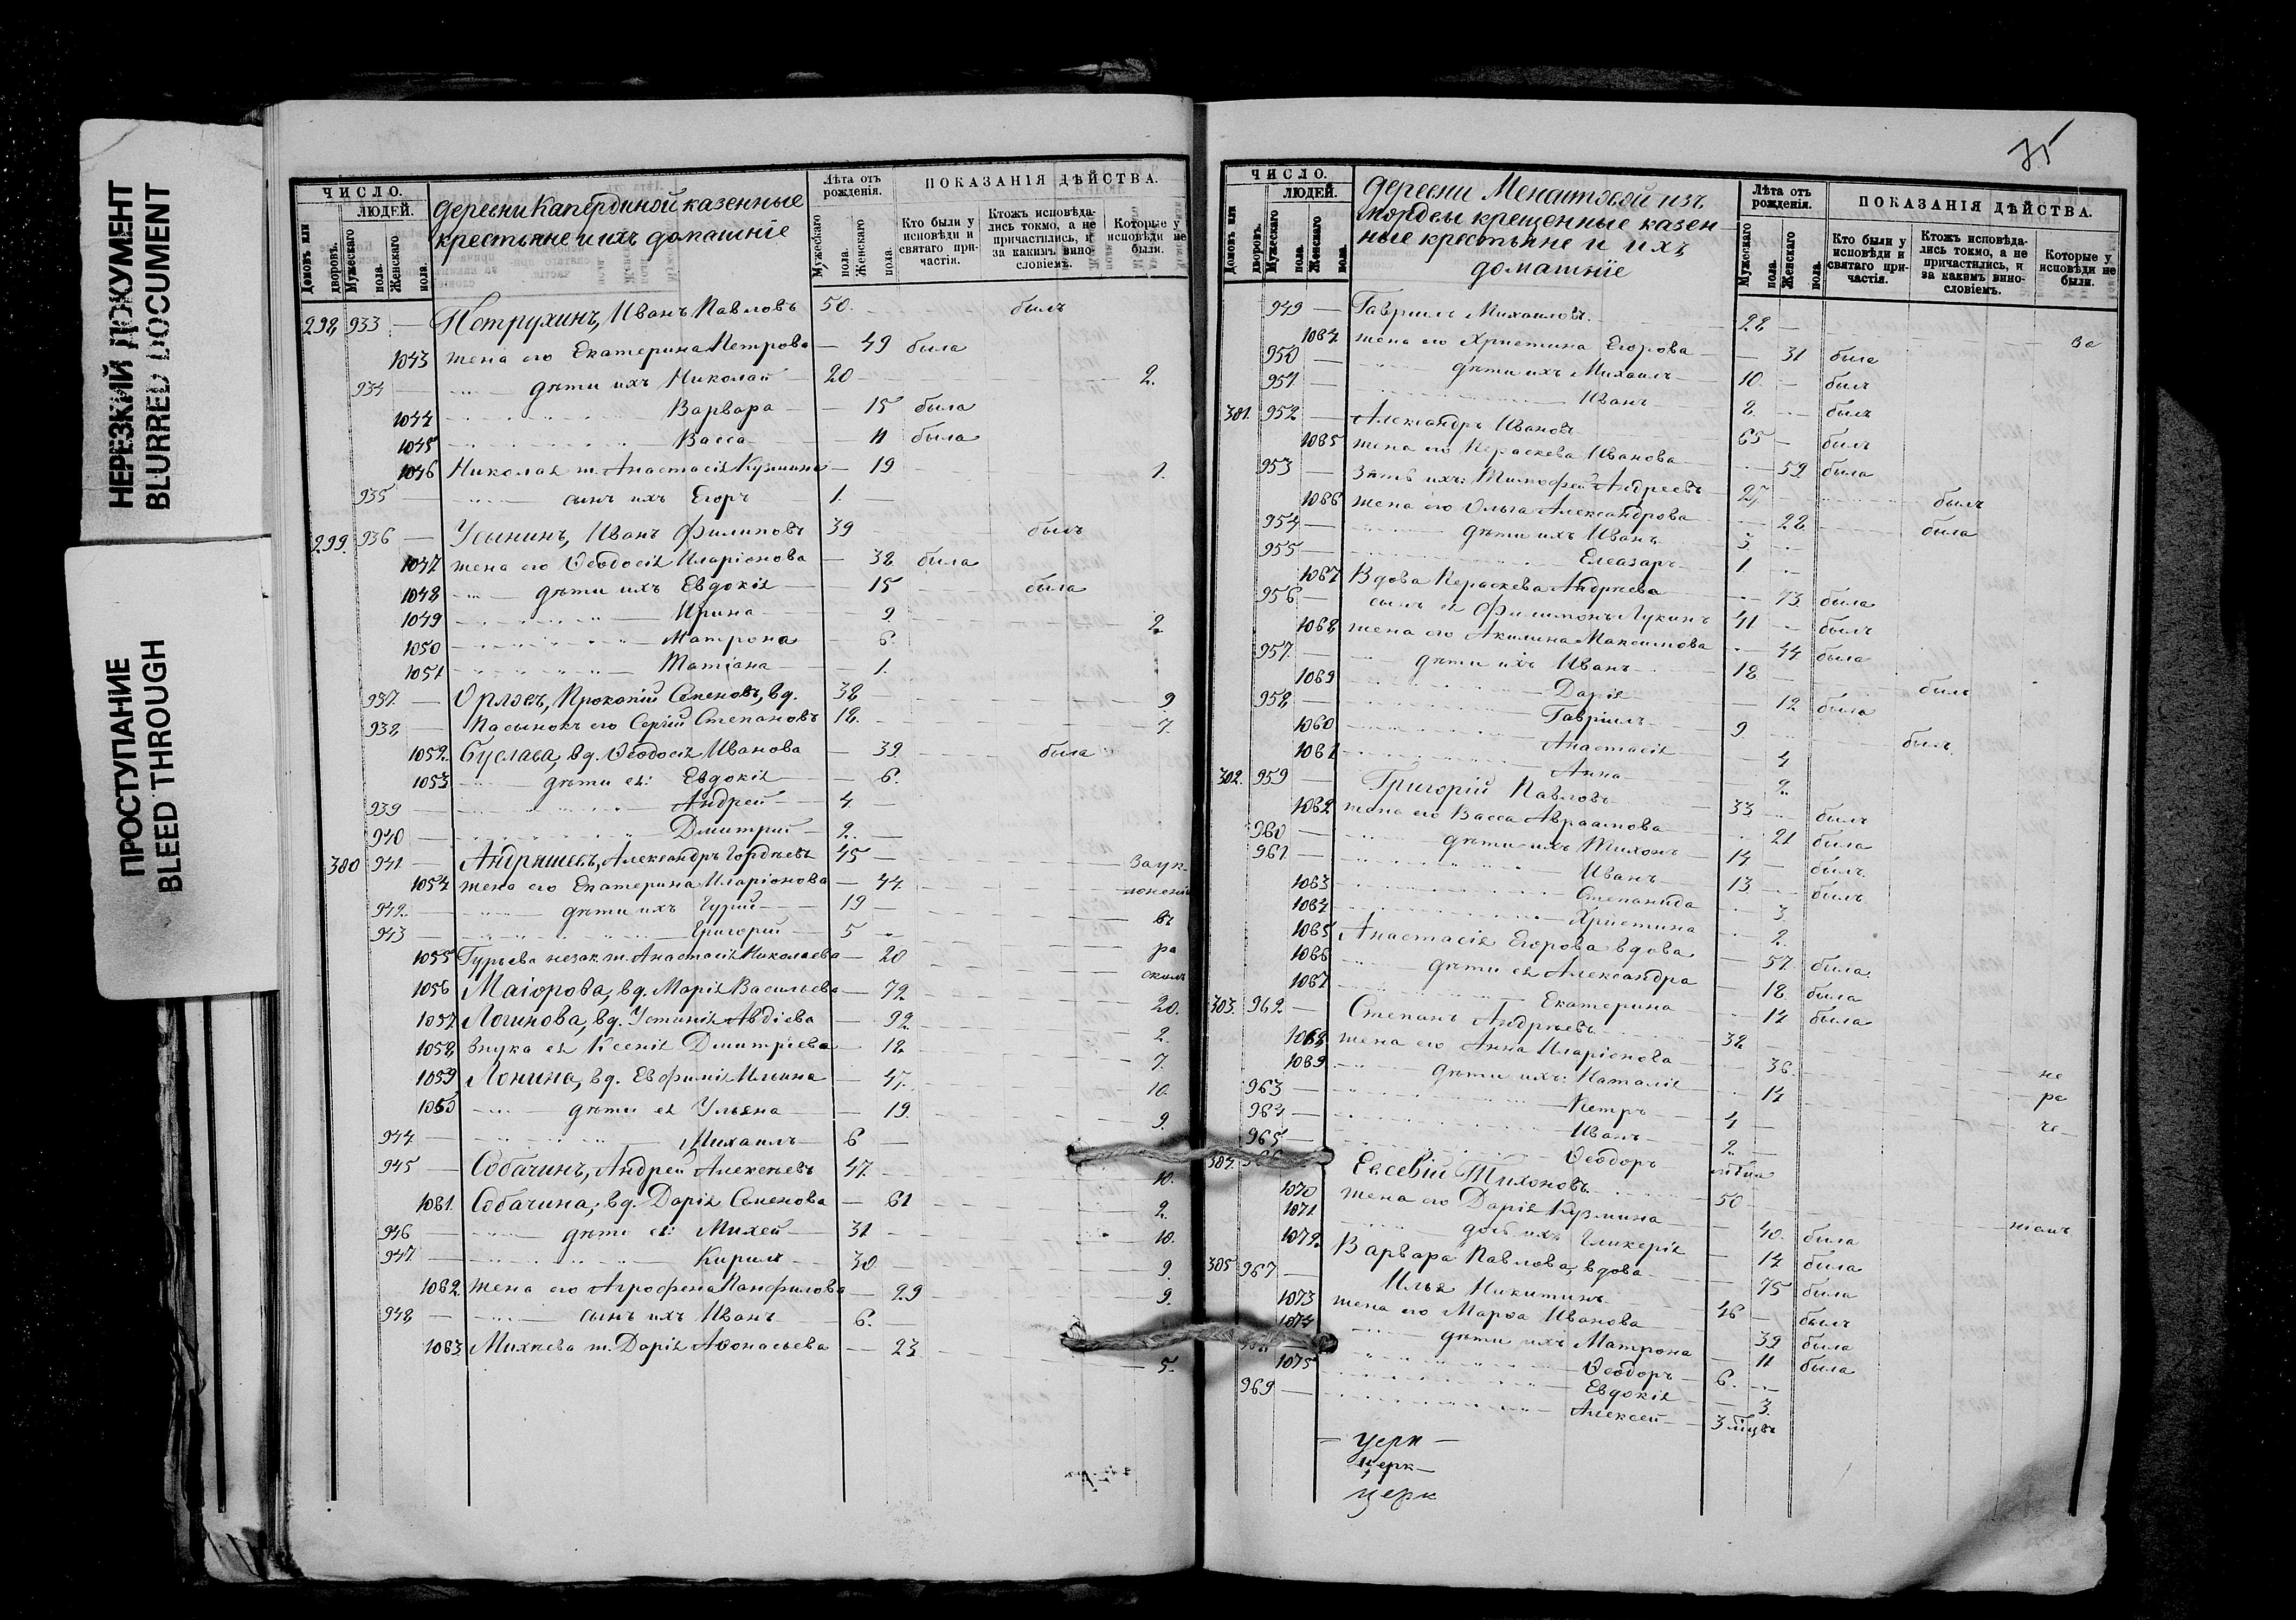 НЕРЕЗКИЙ ДОКУМЕНТ
BLURRED DOCUMENT
ПРОСТУПАНИЕ
BLEED THROUGH
ЧИСЛО.
ЛЮДЕЙ.
Домовъ или дворовъ.
Мужескаго пола.
Женскаго пола.
деревни Капердиной казенные
крестьяне и ихъ домашніе
Лѣта отъ рожденія.
Мужескаго пола.
Женскаго пола.
ПОКАЗАНІЯ ДѢЙСТВА.
Кто были у исповѣди и святаго причастія.
Ктожъ исповѣдались токмо, а не причастились, и за какимъ винословіемъ.
Которые у исповѣди не были.
298 933 — Петрухинъ, Иванъ Павловъ 50. былъ
1043 жена его Екатерина Петрова — 49 была
934 дѣти ихъ Николай 20 2.
1044 Варвара — 15 была
1045 Васса — 11 была
1046 Николая ж. Анастасія Кузмина — 19 1.
935 сынъ ихъ Егоръ 1. —
299. 936 — Усынинъ, Иванъ Филиповъ 39 былъ
1047 жена его Ѳеодосія Иларіонова — 38 была
1048 дѣти ихъ Евдокія — 15 была
1049 Ирина — 9
1050 Матрона — 6 2.
1051 Татіана — 1.
937. — Орловъ, Прокопій Семеновъ, вд. 38 — 9
938 — Пасынокъ его Сергій Степановъ 18. 7.
1052. Буслава, вд. Ѳеодосія Иванова — 39 была
1053 дѣти ея: Евдокія — 6.
939 — Андрей 4. —
940 — Дмитрій 2. —
300 941 — Андряшевъ, Александръ Гордѣевъ 45 — за ук-
1054 жена его Екатерина Иларіонова — 44. лоненіи
942. дѣти ихъ Гурій 19 — въ
943 — Григорій 5 ра
1055 Гурьева незак. ж. Анастасія Николаева — 20 сколъ
1056 Маіорова, вд. Марія Васильева — 72 20.
1057 Логинова, вд. Устинія Авдіева — 92 2.
1058 внука ея Ксенія Дмитріева — 18. 7.
1059 Лонина, вд. Евфимія Ильина — 47. 10.
1060 дѣти ея Ульяна — 19. 9.
944 — Михаилъ 6 —
945 — Собачинъ, Андрей Алексѣевъ 47. 10.
1061. Собачина, вд. Дарія Семенова — 61 2.
946 — дѣти ея: Михей 31. 10.
947. — Кирилъ 30 9.
1062. жена его Агрофена Панфилова — 29 9.
948 — сынъ ихъ Иванъ 6. —
1063. Михѣева ж. Дарія Аѳонасьева — 23 5.
35
ЧИСЛО.
ЛЮДЕЙ.
Домовъ или дворовъ.
Мужескаго пола.
Женскаго пола.
деревни Менаитовой изъ
мордвы крещенные казен-
ные крестьяне и ихъ
домашніе
Лѣта отъ рожденія.
Мужескаго пола.
Женскаго пола.
ПОКАЗАНІЯ ДѢЙСТВА.
Кто были у исповѣди и святаго причастія.
Ктожъ исповѣдались токмо, а не причастились, и за какимъ винословіемъ.
Которые у исповѣди не были.
949 — Гавриилъ Михаиловъ 28 —
1064 жена его Христина Егорова — 31 была
950 — дѣти ихъ Михаилъ 10 — былъ
951 — Иванъ 8. — былъ
301. 952 — Александръ Ивановъ 65 — былъ
1065 жена его Пераскева Иванова — 59 была
953 — Зять ихъ: Тимофей Андреевъ 27 былъ
1066 жена его Ольга Александрова — 28 была
954 — дѣти ихъ Иванъ 3. —
955 — Елеазаръ 1. —
1067 Вдова Пераскева Андреева — 73 была
956 — сынъ ея Филимонъ Лукинъ 41 — былъ
1068 жена его Акилина Максимова — 44 была
957 — дѣти ихъ Иванъ 18 — былъ
1069 Дарія — 12 была
958 — Гавріилъ 9 былъ
1060 Анастасія — 4
1061 Анна — 2.
302. 959 — Григорій Павловъ 33 — былъ
1062 жена его Васса Авраамова — 21 была
960 — дѣти ихъ Тихонъ 14 — былъ
961. — Иванъ 13 — былъ
1063 Степанида — 3.
1064 Христина — 2.
1065 Анастасія Егорова вдова — 57. была
1066 дѣти ея Александра — 18 была
1067 Екатерина — 14 была
303. 962 — Степанъ Андрѣевъ 38
1068 жена его Анна Иларіонова — 36. не
1069 дѣти ихъ: Наталія — 14 ре
963 — Петръ 4 — че
964 — Иванъ 2. —
965 — Ѳеодоръ
304. Евсевій Тихоновъ 50
1070 жена его Дарія Кузмина — 40. была
1071 дочь ихъ Гликерія — 14 была
1072. Варвара Павлова, вдова — 75 была
305 967 — Илья Никитинъ 46 — былъ
1073 жена его Марѳа Иванова — 39 была
1074 дѣти ихъ Матрона — 11 была
Ѳеодоръ 6. —
1075 Евдокія — 3.
969 — Алексей 3 мцвъ
— церк —
церк —
церк